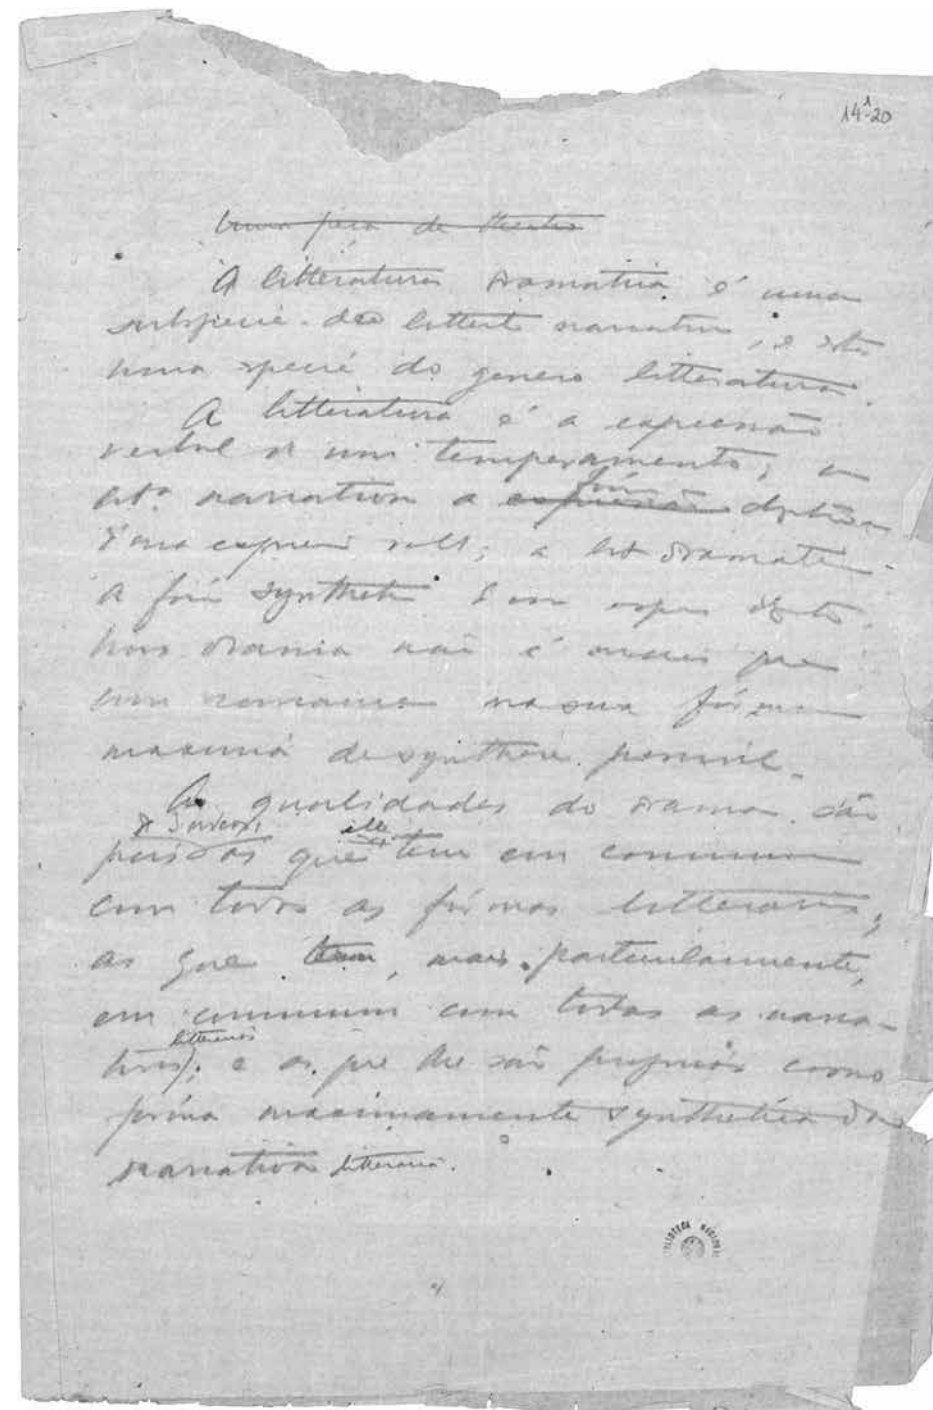 14¹-20
Uma peça de theatro
A litteratura dramatica é uma
subspecie da litterat narrativa, e esta
uma specie do genero litteratura.
A litteratura é a expressão
verbal de um temperamento; a
litª narrativa a expressão fórma
d'essa expressão; a litt dramatica
a fórma synthetica
drama não é mais que
um romance na sua fórma
maxima de synthese possivel.
As qualidades do drama são
pois as que elle tem em commum
com todas as fórmas litterarias;
as que tem, mais particularmente,
em commum com todas as narra-
tivas litterarias; e as que lhe são proprias como
fórma maximamente synthetica da
narrativa litteraria.
BIBLIOTECA NACIONAL